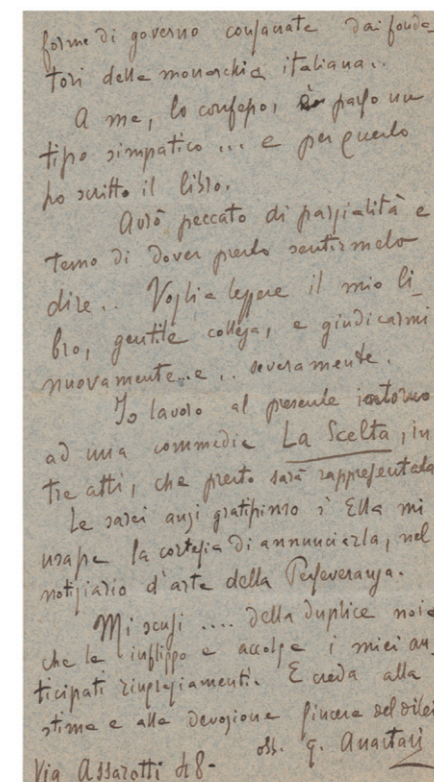 forme di governo consacrate dai fonda_
tori della monarchia italiana..
A me, lo confesso, è parso un
tipo simpatico ... e per questo
ho scritto il libro.
Avrò peccato di parzialità e
temo di dover presto sentirmelo
dire.. Voglia leggere il mio li_
bro, gentile collega, e giudicarmi
nuovamente...e.. severamente.
Io lavoro al presente intorno
ad una commedia La Scelta, in
tre atti, che presto sarà rappresentata
Le sarei anzi gratissimo s' Ella mi
usasse la cortesia di annunciarla, nel
notiziario d'arte della Perseveranza.
Mi scusi .... della duplice noia
che le infliggo e accolga i miei an_
ticipati ringraziamenti. E creda alla
stima e alla devozione sincera del di lei
obb. G. Anastasi
Via Assarotti 48-